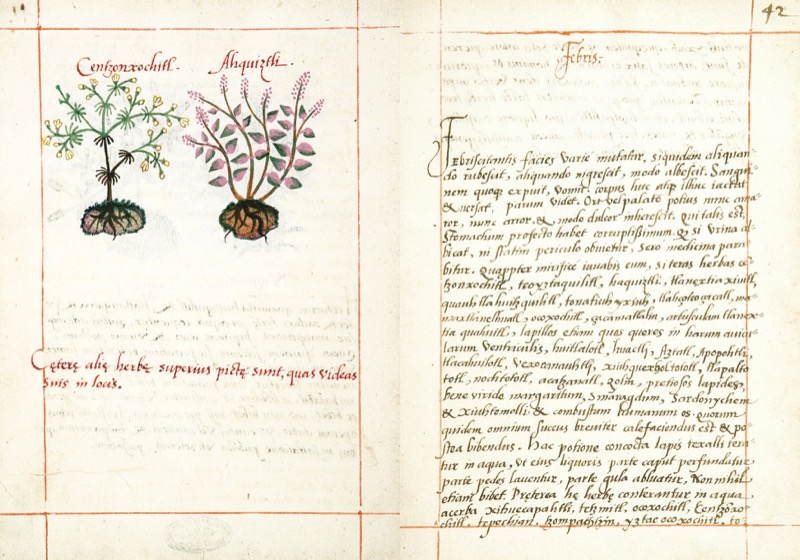 Centzonxochitl.
Ahquiztli.
Cęterę alię herbę superius pictę sunt, quas videas
suis in locis.
42
Febris.
Febriscitantis facies varie mutatur. siquidem aliquan-
do rubescit, aliquando nigrescit, modo albescit. Sangui-
nem quoq; expuit, vomit. corpus huc atq; illuc iactat
& versat, parum videt. Ori vel palato potius nunc ama-
ror, nunc ardor. & modo dulcor inherescit. Qui talis est,
Stomachum profecto habet corruptissimum. Q̃ si vrina al-
bicat, ni statim periculo obuietur, sero medicina para
bitur. Quapp̱ter mirifice iuuabis eum, si teras herbas cẽ-
tzonxochitl, teoyztaquilitl, haquiztli, tlanextia xiuitl,
quauhtla huitzquilitl, tonatiuh yxiuh, tlatzolco
ocoxochitl, çacamatlalin, arbusculum tlanex-
tia quahuitl, lapillos etiam quos queres in harum auicu-
larum ventriculis, huitlalotl, huactli, Aztatl, Apopohtli,
tlacahuilotl, vexocanauhtli, xiuhquecholtototl, tlapalto
totl, nochtototl, acatzanatl, zolin, pretiosos lapides,
bene viride margaritum, Smaragdum, Sardonychem
& Xiuhtomolli. & combustum humanum os. quorum
quidem omnium succus breuiter calefaciendus est & po-
stea bibendus. Hac potione concocta lapis texalli tera-
tur in aqua, vt eius liquoris parte caput perfundatur
parte pedes lauentur, parte gula abluatur. Non nihil
etiam bibet. Pręterea hę herbę conterantur in aqua
acerba xihuecapahtli, tetzmitl, ocoxochitl, Centzonxo-
chitl, tepechian, tzompachtzin, yztac ocoxochitl, to-